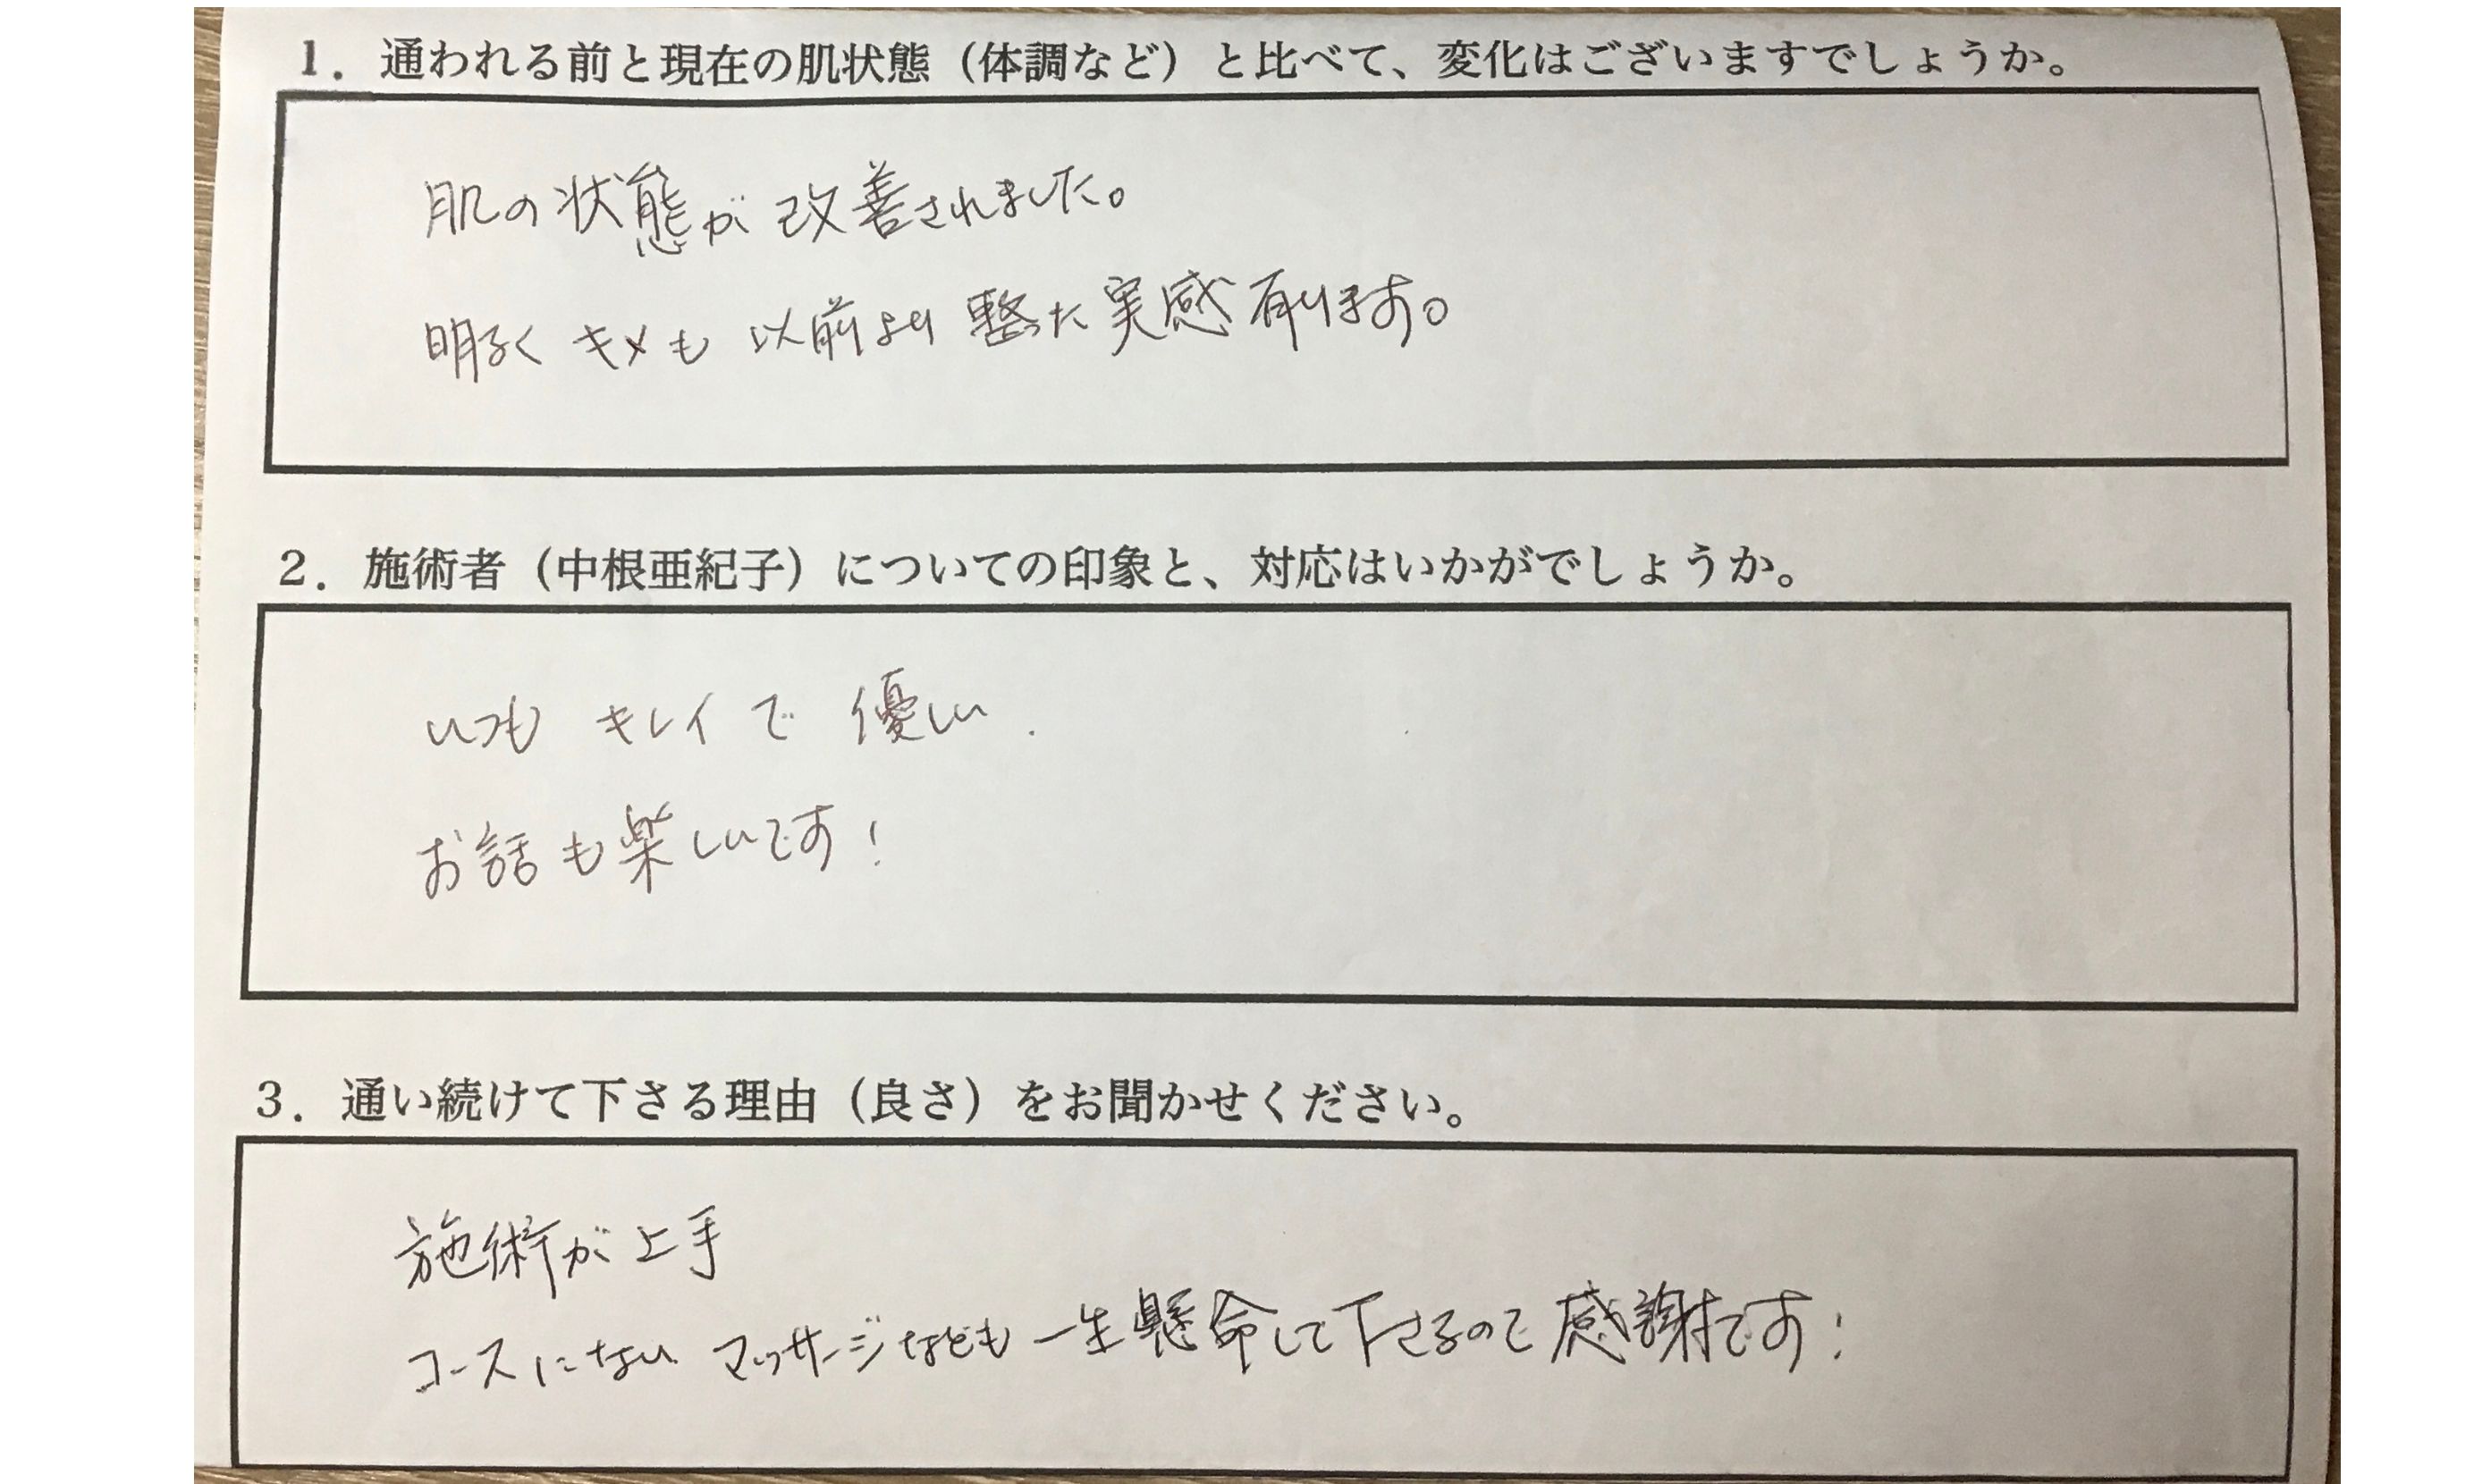 1．通われる前と現在の肌状態（体調など）と比べて、変化はございますでしょうか。
肌の状態が改善されました。
明るくキメも以前より整った実感有ります。
2．施術者（中根亜紀子）についての印象と、対応はいかがでしょうか。
いつもキレイで優しい.
お話も楽しいです!
3．通い続けて下さる理由（良さ）をお聞かせください。
施術が上手
コースにないマッサージなども一生懸命して下さるので感謝です!